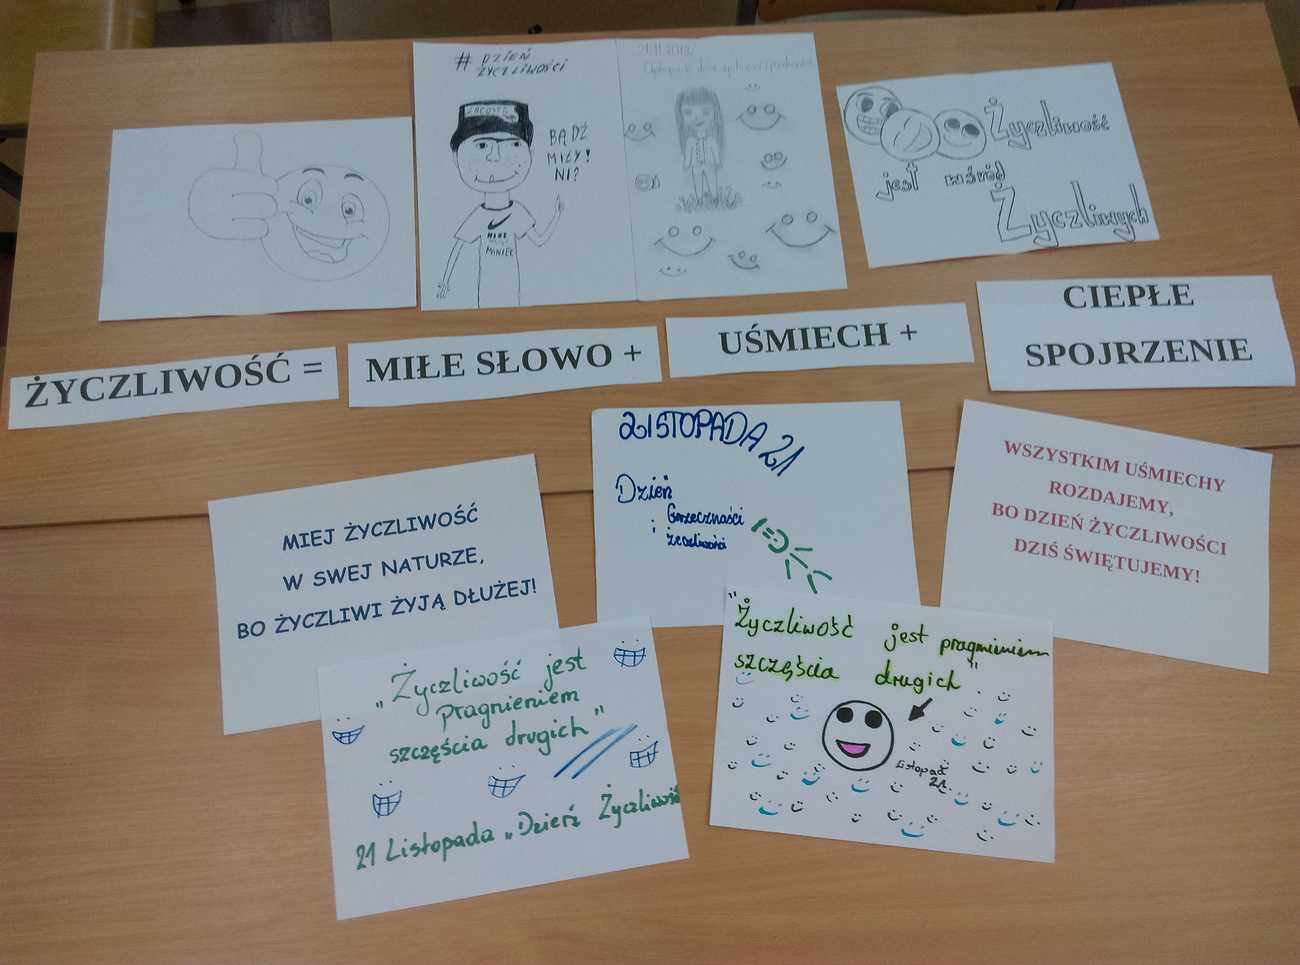 # DZIEŃ
ŻYCZLIWOŚCI
LACOSTE
BĄDŹ
MIŁY!
NI?
NIKE
MINIEC
21.11.2018
Życzliwość
jest wśród
Życzliwych
ŻYCZLIWOŚĆ =
MIŁE SŁOWO +
UŚMIECH +
CIEPŁE
SPOJRZENIE
MIEJ ŻYCZLIWOŚĆ
W SWEJ NATURZE,
BO ŻYCZLIWI ŻYJĄ DŁUŻEJ!
LISTOPADA 21
Dzień
Grzeczności
i
życzliwości
WSZYSTKIM UŚMIECHY
ROZDAJEMY,
BO DZIEŃ ŻYCZLIWOŚCI
DZIŚ ŚWIĘTUJEMY!
„Życzliwość jest
Pragnieniem
szczęścia drugich"
21 Listopada „Dzień Życzliwość
"Życzliwość jest pragnieniem
szczęścia drugich"
Listopad
21